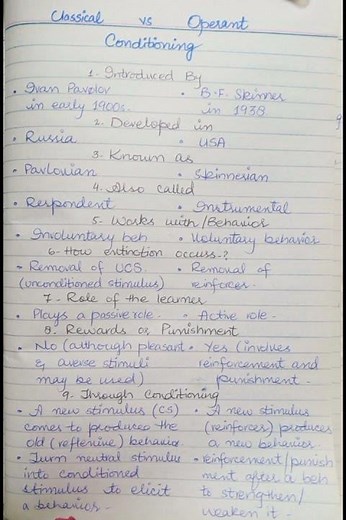 Classical vs Operant
Conditioning
1. Introduced By
• Ivan Pavolov • B.F. Skinner
in early 1900s. in 1938
2. Developed in
• Russia • USA
3. Known as
• Pavlovian • Skinnerian
4. Also called
• Respondent • Instrumental
5- Works with/Behavior
• Involuntary beh • Voluntary behavior
6- How extinction occurs-?
- Removal of UCS. • Removal of
(unconditioned stimulus) reinforcer.
7- Role of the learner
• Plays a passive role. • Active role-
8. Rewards or Punishment
• No (although pleasant • Yes (involves
& averse stimuli reinforcement and
may be used) punishment-
9. Through Conditioning
• A new stimulus (CS) • A new stimulus
comes to produces the (reinforcer) produces
old (reflexive) behavior. a new behavior.
• Turn neutral stimulus • reinforcement/punish
into conditioned ment after a beh
stimulus to elicit to strengthen/
a behavior. weaken it -